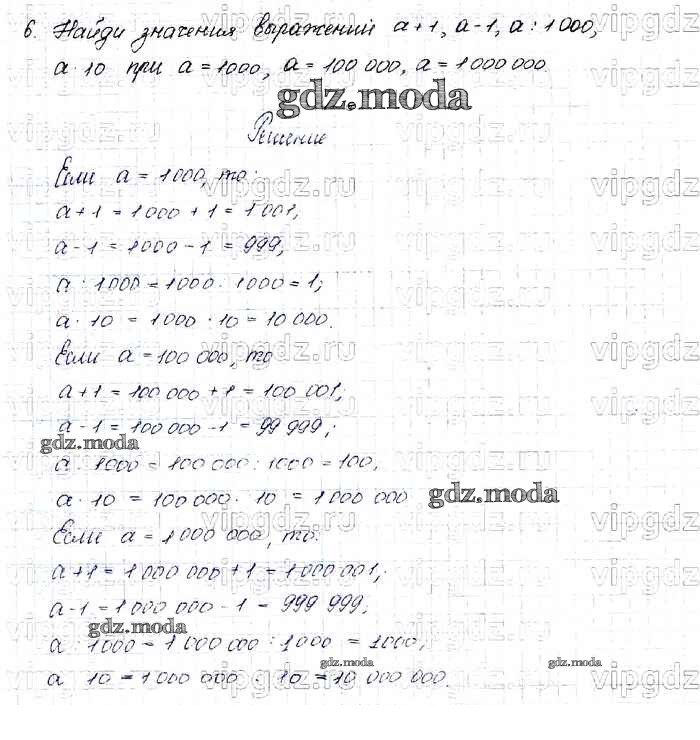 6. Найди значения выражений a+1, a-1, a:1000,
a·10 при a=1000, a=100 000, a=1 000 000.
gdz.moda
Решение
vipgdz.ru vipgdz
Если a=1000, то:
a+1=1000+1=1001,
vipgdz.ru vipgdz
a-1=1000-1=999,
a:1000=1000:1000=1;
vipgdz.ru vipgdz
a·10=1000·10=10 000.
Если a=100 000, то
vipgdz.ru vipgdz
a+1=100 000+1=100 001;
a-1=100 000-1=99 999;
vipgdz.ru vipgdz
gdz.moda
a:1000=100 000:1000=100,
vipgdz.ru vipgdz
a·10=100 000·10=1 000 000
gdz.moda
Если a=1 000 000, то:
vipgdz.ru vipgdz
a+1=1 000 000+1=1 000 001;
vipgdz.ru vipgdz
a-1=1 000 000-1=999 999;
gdz.moda
a:1000=1 000 000:1000=1000,
vipgdz.ru vipgdz
gdz.moda gdz.moda
a 10=1 000 000·10=10 000 000.
vipgdz.ru vipgdz